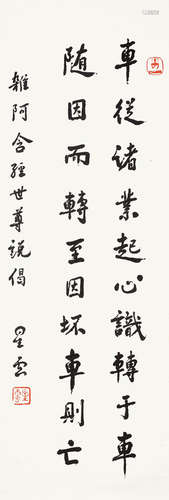 車從諸業起心識轉于車
隨因而轉至因坏車則亡
雜阿含經世尊説偈
星雲